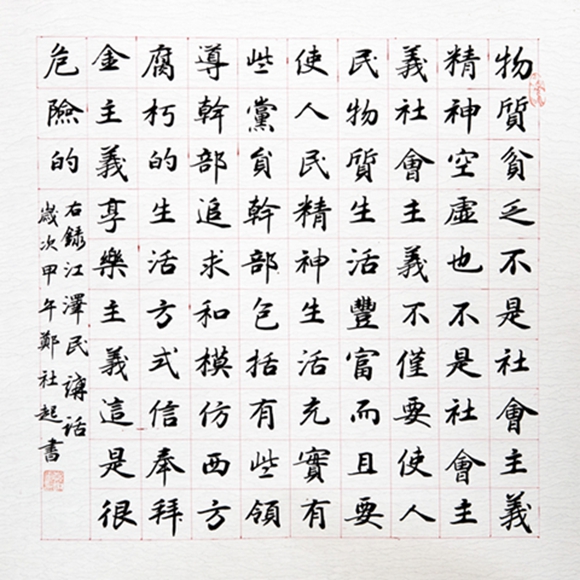 物質貧乏不是社會主義
精神空虛也不是社會主
義社會主義不僅要使人
民物質生活豐富而且要
使人民精神生活充實有
些黨員幹部包括有些領
導幹部追求和模仿西方
腐朽的生活方式信奉拜
金主義享樂主義這是很
危險的
右錄江澤民講話
歲次甲午鄭社起書